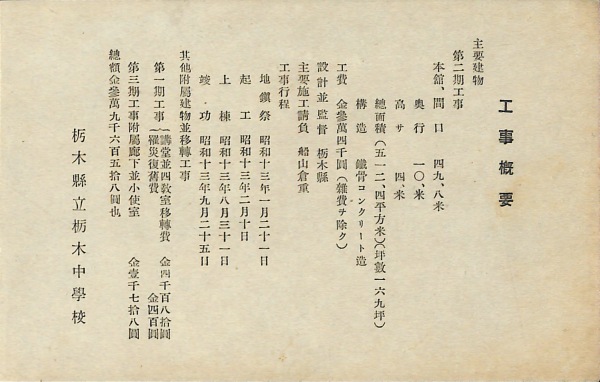 工事概要
主要建物
第二期工事
本館、間口 四九、八米
奥行 一〇、米
高サ 四、米
總面積(五一二、四平方米)(坪數一六九坪)
構造 鐵骨コンクリート造
工費 金參萬四千圓(雜費ヲ除ク)
設計並監督 栃木縣
主要施工請負 船山倉重
工事行程
地鎭祭 昭和十三年一月二十一日
起工 昭和十三年二月十日
上棟 昭和十三年八月三十一日
竣功 昭和十三年九月二十五日
其他附屬建物並移轉工事
第一期工事 講堂並四教室移轉費 金四千百八拾圓
罹災復舊費 金四百圓
第三期工事附屬廊下並小使室 金壹千七拾八圓
總額金參萬九千六百五拾八圓也
栃木縣立栃木中學校